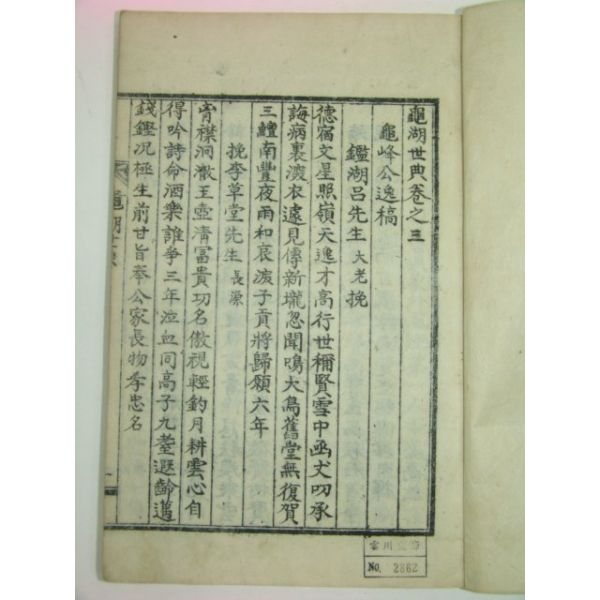 龜湖世典卷之三
龜峰公逸稿
鑑湖呂先生 大老 挽
德宿文星照嶺天逸才高行世稱賢雪中函丈叨承
誨病裏渡衣遠見傳新壠忽聞鳴大鳥舊堂無復賀
三鱣南豐夜雨和哀淚子貢將歸願六年
挽李草堂先生 長源
胷襟洞澈玉壺淸富貴功名傲視輕釣月耕雲心自
得吟詩命酒樂誰爭三年泣血同高子九耋遐齡邁
錢鏗况極生前甘旨奉公家長物孝忠名
龜湖世
一
No. 2862